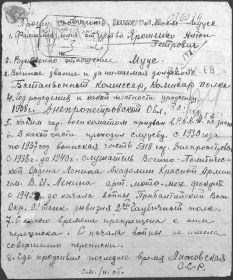 Прошу сообщить ... о моём муже
1. Фамилия имя отчество Ярошенко Антон
Петрович
2. Родственное отношение Муж
3. Военное звание и занимаемая должность
Батальонный Комиссар, комиссар полка
4. Год рождения и какой местности уроженец
1908 г. Днепропетровской Обл.
5. Каким рай. военкоматом призван в Р.К.К.А.
6. В какой части проходил службу. С 1930 года
по 1937 год воинская часть 5918 гор. Днепропетровск
С 1938 г. до 1940 г. слушатель Военно-Политичес-
кой Ордена Ленина Академии Красной Армии
им. В. И. Ленина арт. мото-мех. факульт.
С 1940 г. до начала войны, Прибалтийский Воен.
Окр. дивизия 2й Гаубичный полк.
7. С какого времени прекращена с ним
переписка. С начала войны не имела
совершенно переписки.
8. Где проживал последнее время Литовская
С.С.Р.
см. н. об.